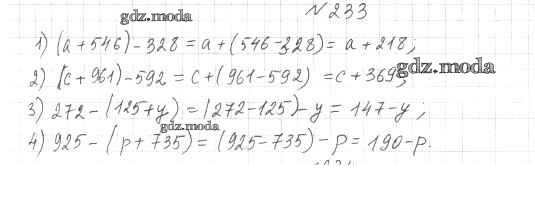 №233
gdz.moda
1) (a + 546) - 328 = a + (546 - 328) = a + 218;
2) (c + 961) - 592 = c + (961 - 592) = c + 369;
gdz.moda
3) 272 - (125 + y) = (272 - 125) - y = 147 - y;
gdz.moda
4) 925 - (p + 735) = (925 - 735) - p = 190 - p.